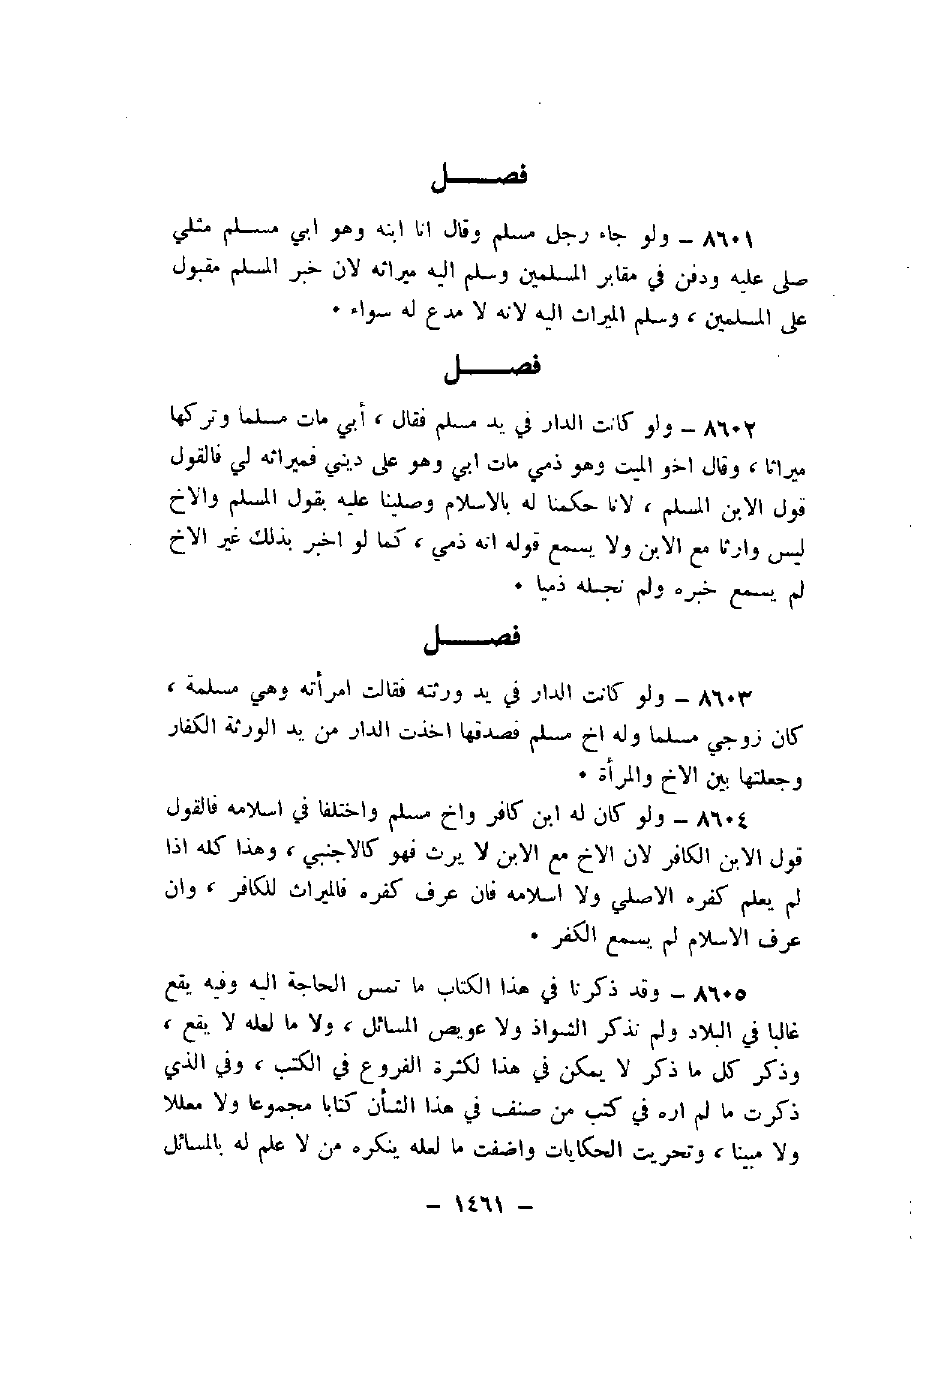 فصـــــل
٨٦٠١ ـ ولو جاء رجل مسلم وقال انا ابنه وهو ابي مسلم مثلي
صلى عليه ودفن في مقابر المسلمين وسلم اليه ميراثه لان خبر المسلم مقبول
على المسلمين ، وسلم الميراث اليه لانه لا مدع له سواء ٠
فصـــــل
٨٦٠٢ ـ ولو كانت الدار في يد مسلم فقال ، أبي مات مسلما وتركها
ميراثا ، وقال اخو الميت وهو ذمي مات ابي وهو على ديني فميراثه لي فالقول
قول الابن المسلم ، لانا حكمنا له بالاسلام وصلينا عليه بقول المسلم والاخ
ليس وارثا مع الابن ولا يسمع قوله انه ذمي ، كما لو اخبر بذلك غير الاخ
لم يسمع خبره ولم نجعله ذميا ٠
فصـــــل
٨٦٠٣ ـ ولو كانت الدار في يد ورثته فقالت امرأته وهي مسلمة ،
كان زوجي مسلما وله اخ مسلم فصدقها اخذت الدار من يد الورثة الكفار
وجعلتها بين الاخ والمرأة ٠
٨٦٠٤ ـ ولو كان له ابن كافر واخ مسلم واختلفا في اسلامه فالقول
قول الابن الكافر لان الاخ مع الابن لا يرث فهو كالاجنبي ، وهذا كله اذا
لم يعلم كفره الاصلي ولا اسلامه فان عرف كفره فالميراث للكافر ، وان
عرف الاسلام لم يسمع الكفر ٠
٨٦٠٥ ـ وقد ذكرنا في هذا الكتاب ما تمس الحاجة اليه وفيه يقع
غالبا في البلاد ولم نذكر الشواذ ولا عويص المسائل ، ولا ما لعله لا يقع ،
وذكر كل ما ذكر لا يمكن في هذا لكثرة الفروع في الكتب ، وفي الذي
ذكرت ما لم اره في كتب من صنف في هذا الشأن كتابا مجموعا ولا معللا
ولا مبينا ، وتحريت الحكايات واضفت ما لعله ينكره من لا علم له بالمسائل
ـ ١٤٦١ ـ